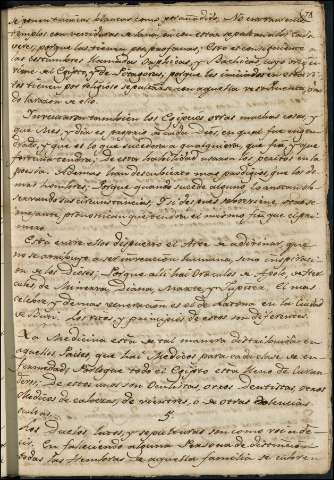 se ponen tan blancos como yà
Templos con vestiduras de lana, ni con estas se sepultan los Cada
veres, porque los tienen por profanos. Esto es conseguidiente a
las costumbres llamadas Orphicas y Bachicas, cuyo orig
viene del Egipto, y de Pitagoras, porque los iniciados en estos ri
tos tienen por religioso sepultarse con aquella vestimenta, dan
do la razon de ello.
Inventaron tambien los Egipcios otras muchas cosas, y
que Mes, y dia es propio à cada Dios, en què fue engen
drado, y que es lo que sucederà a qualquiera, que fin, y que
fortuna tendrà; De esta habilidad usaron los peritos en la
poesia. Ademas han descubierto mas prodigios que los de
mas hombres. Porque quando sucede alguno lo anotan ob
servando sus circunstancias, i si despues sobreviene otro se
mejante pronostican que tendrà el mismo fin que el pri
mero.
Està entre ellos dispuesto el Arte de adivinar, que
no se atribuye a ser invencion humana, sino inspiraci
on de los Dioses. Porque alli hai Oraculos de Apolo, de Her
cules, de Minerva, Diana, Marte, y Jupiter. El mas
celebre, y de mas veneracion es el de Latona en la Ciudad
de Buti. Los ritos y principios de estos son diferentes.
La Medicina està de tal manera distribuida en
aquellos Paises, que hai Medicos para cada clase de en
fermedad, de modo que todo el Egipto està lleno de Curan
deros, de estos unos son Oculistas, otros Dentistas, otros
Medicos de cabeza, de vientres, ò de otras dolencias
ocultas.
Los Duelos, lutos, y sepulturas son como voi à de
cir. En falleciendo alguna Persona de distincion
todas las Hembras de aquella familia se cubren